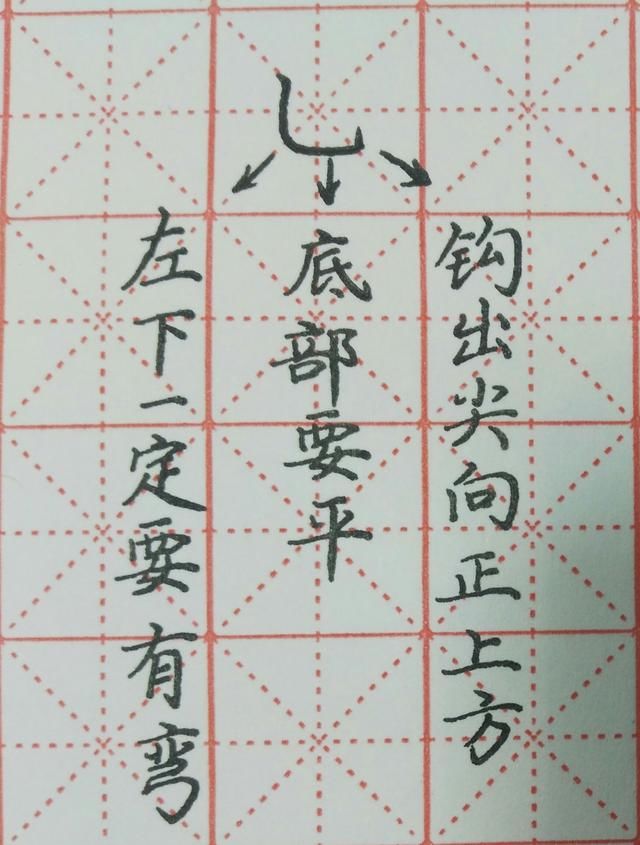 乚
左下一定要有弯
底部要平
钩出尖向正上方